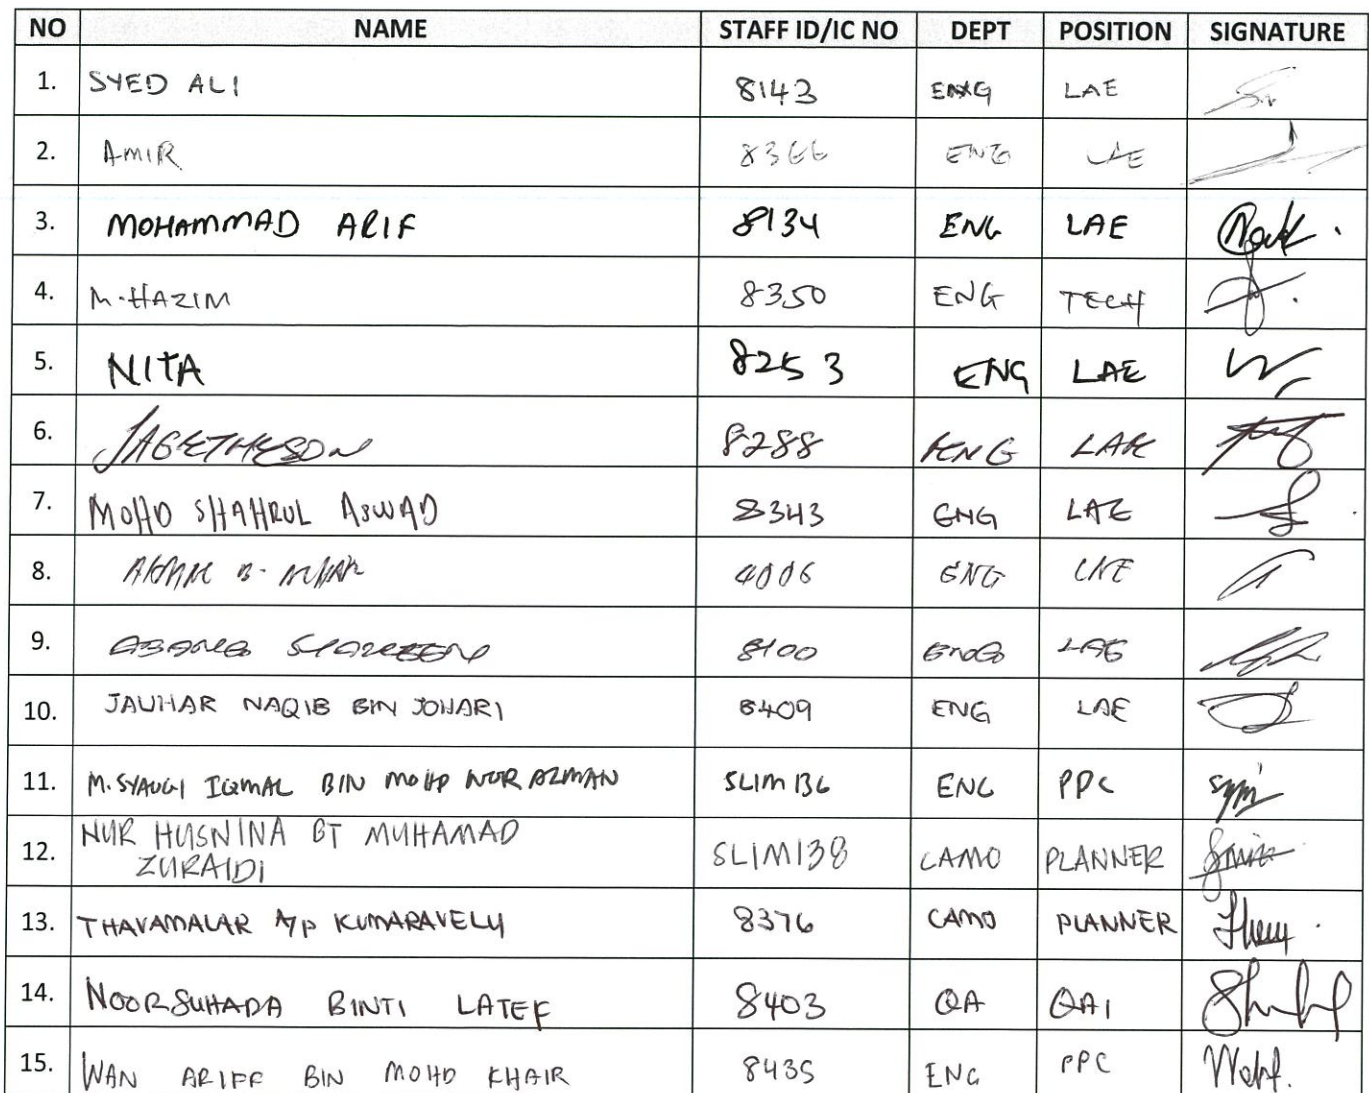 NO NAME STAFF ID/IC NO DEPT POSITION SIGNATURE
1. SYED ALI 8143 ENG LAE
2. AMIR 8366 ENG LAE
3. MOHAMMAD ARIF 8134 ENG LAE
4. M.HAZIM 8350 ENG TECH
5. NITA 8253 ENG LAE
6. JAGETHESON 8288 ENG LAE
7. MOHD SHAHRUL ASWAD 8343 ENG LAE
8. B. 4006 ENG LAE
9. ABANG 8100 ENG LAE
10. JAUHAR NAQIB BIN JOHARI 8409 ENG LAE
11. M.SYAUGI IQMAL BIN MOHD NOR AZMAN SLIM136 ENG PPC
12. NUR HUSNINA BT MUHAMAD
ZURAIDI SLIM138 CAMO PLANNER
13. THAVAMALAR A/P KUMARAVELU 8376 CAMO PLANNER
14. NOORSUHADA BINTI LATEF 8403 QA QAI
15. WAN ARIFF BIN MOHD KHAIR 8435 ENG PPC